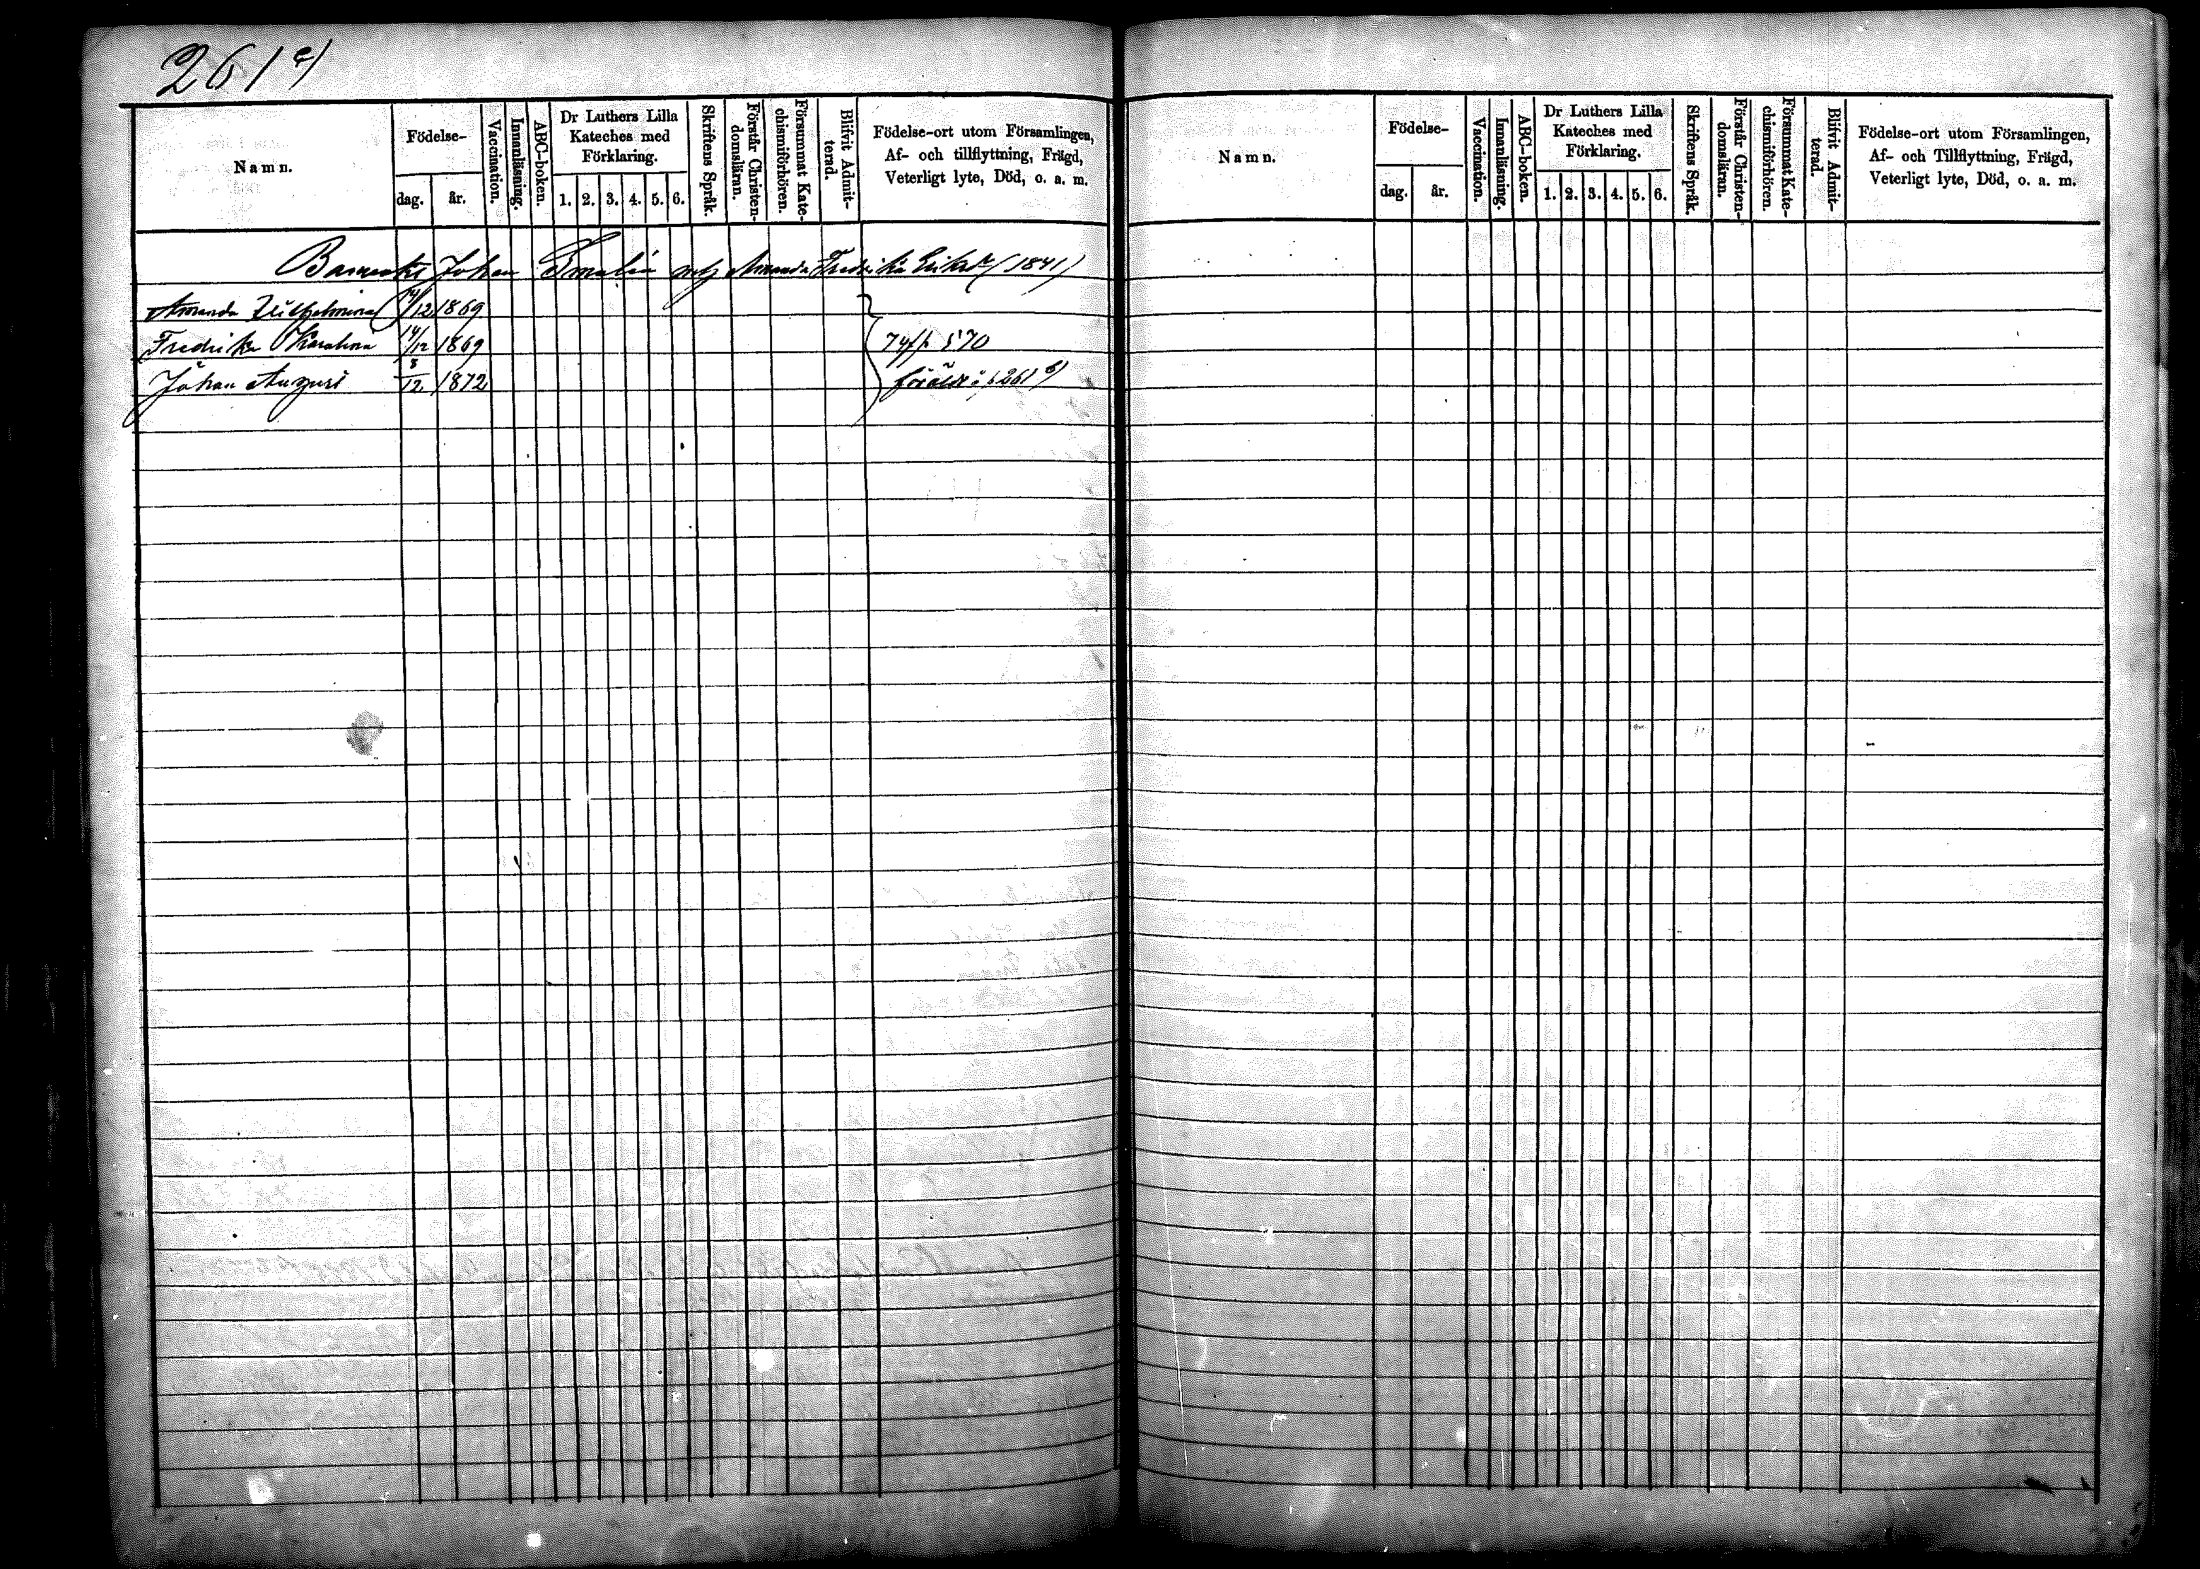 261 c)
Namn.
Födelse-
dag.
år.
Vaccination.
Innanläsning.
ABC-boken.
Dr Luthers Lilla
Kateches med
Förklaring.
1. 2. 3. 4. 5. 6.
Skriftens Språk.
Förstår Christen-
domsläran.
Försummat Kate-
chismiförhören.
Blifvit Admit-
terad.
Födelse-ort utom Församlingen,
Af- och tillflyttning, Frägd,
Veterligt lyte, Död, o. a. m.
Johan Amanda Fredrika (1841)
Amanda Wilhelmina 14/12 1869
Fredrika Karolina 14/12 1869
Johan August 3/12 1872
föräldr: p 261
Namn.
Födelse-
dag.
år.
Vaccination.
Innanläsning.
ABC-boken.
Dr Luthers Lilla
Kateches med
Förklaring.
1. 2. 3. 4. 5. 6.
Skriftens Språk.
Förstår Christen-
domsläran.
Försummat Kate-
chismiförhören.
Blifvit Admit-
terad.
Födelse-ort utom Församlingen,
Af- och Tillflyttning, Frägd,
Veterligt lyte, Död, o. a. m.